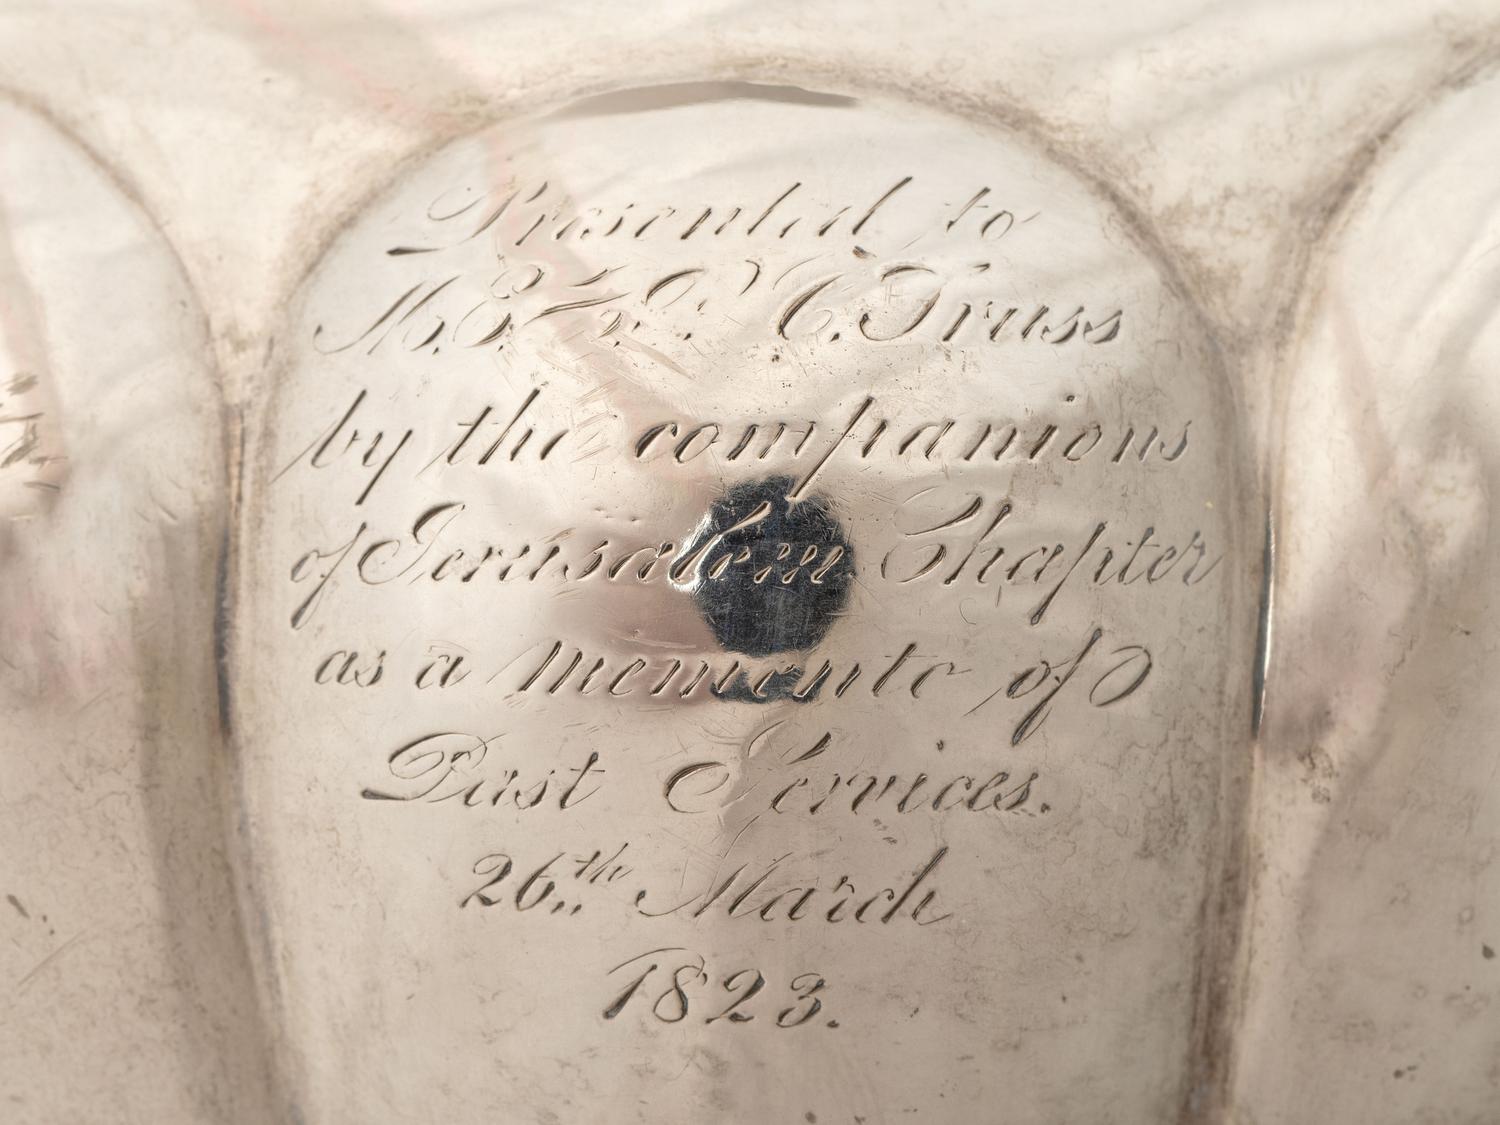 Presented to
M.E.Z. C. Truss
by the companions
of Jerusalem Chapter
as a memento of
Past Services.
26th March
1823.